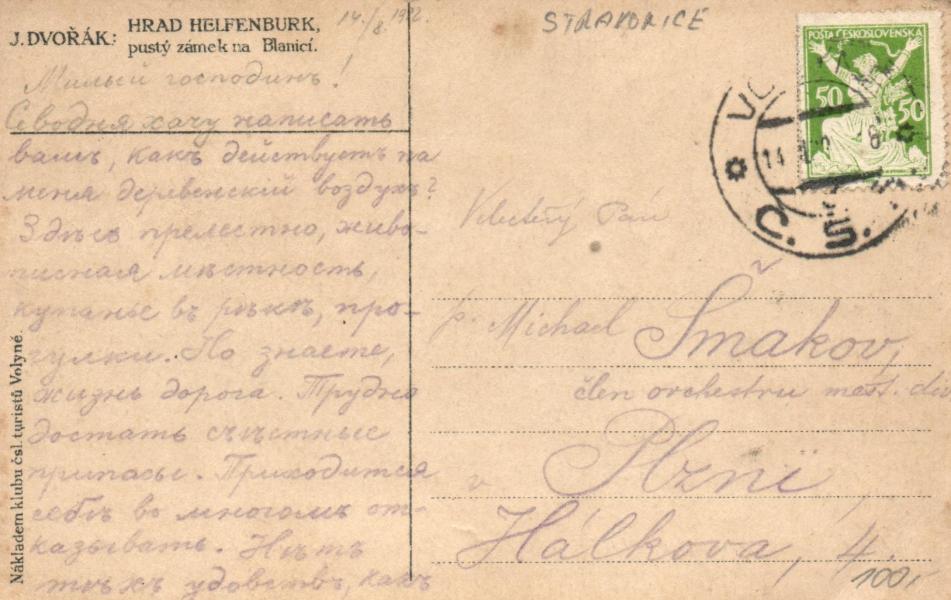 J. DVOŘÁK: HRAD HELFENBURK,
pustý zámek na Blanicí.
14./8 1922
STRAKONICE
POŠTA ČESKOSLOVENSKÁ
50 50
VO
14
Č. S.
Милый господинъ!
Севодня хачу написать
вамъ, какъ действуетъ на
меня деревенскій воздухъ?
Здѣсь прелестно, живо-
писная мѣстность,
купанье въ рѣкѣ, про-
гулки. Но знаете,
жизнь дорога. Трудно
достать съѣстные
припасы. Приходится
себѣ во многомъ от-
казывать. Нѣтъ
тѣхъ удобствъ, какъ
Velectěný Pán
p. Michael Šmakov,
člen orchestru měst. di
v Plzni
Hálkova, 4.
100,-
Nákladem klubu čsl. turistů Volyně